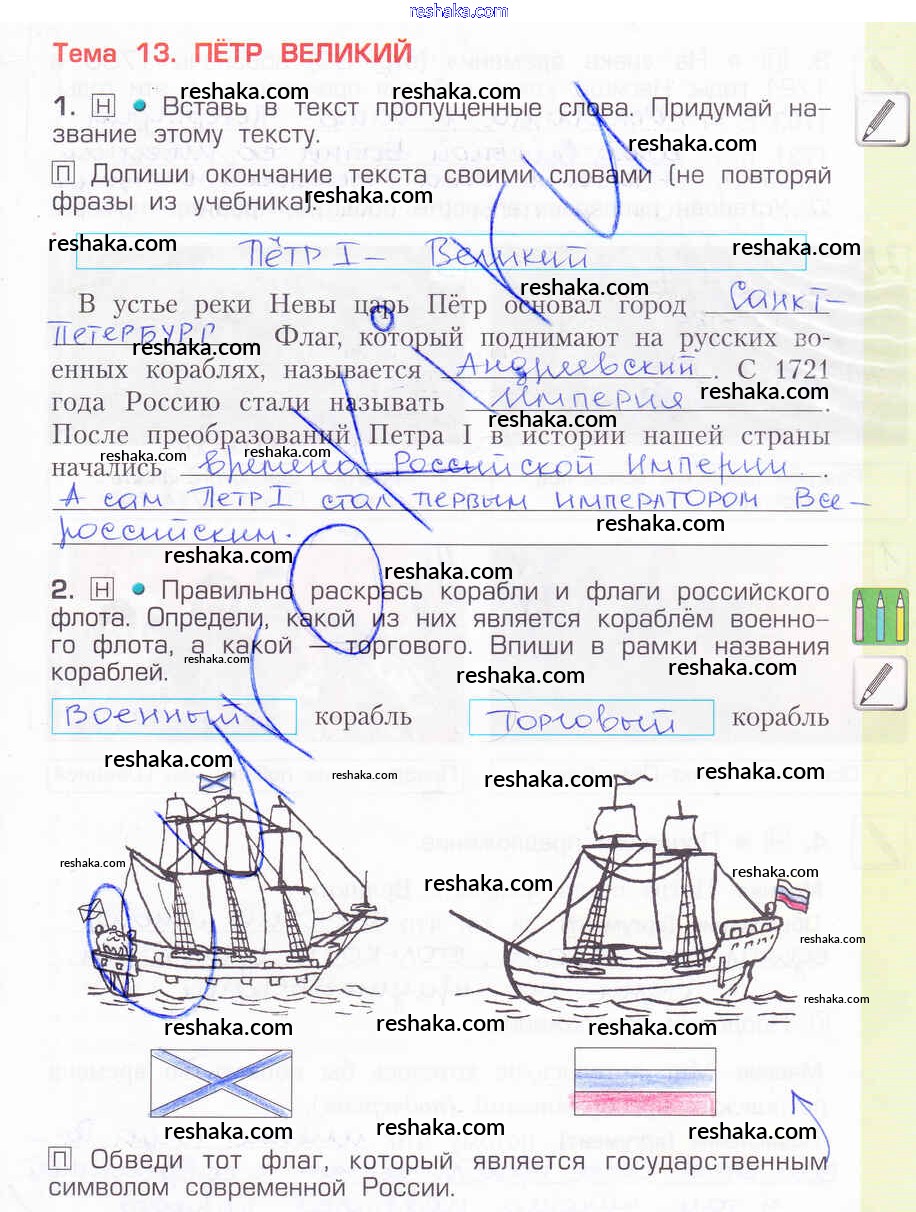 reshaka.com
Тема 13. ПЁТР ВЕЛИКИЙ
reshaka.com reshaka.com reshaka.com
1. Н • Вставь в текст пропущенные слова. Придумай на-
звание этому тексту.
reshaka.com
П Допиши окончание текста своими словами (не повторяй
фразы из учебника).
reshaka.com
reshaka.com reshaka.com
Пётр I – Великий
reshaka.com
В устье реки Невы царь Пётр основал город Санкт-
Петербург. Флаг, который поднимают на русских во-
reshaka.com
енных кораблях, называется Андреевский. С 1721
reshaka.com
года Россию стали называть Империя.
reshaka.com
После преобразований Петра I в истории нашей страны
reshaka.com reshaka.com
начались времена Российской Империи.
А сам Петр I стал первым императором Все-
reshaka.com
российским.
reshaka.com reshaka.com
2. Н • Правильно раскрась корабли и флаги российского
флота. Определи, какой из них является кораблём военно-
го флота, а какой — торгового. Впиши в рамки названия
reshaka.com reshaka.com reshaka.com
кораблей.
Военный корабль Торговый корабль
reshaka.com reshaka.com
reshaka.com reshaka.com
reshaka.com reshaka.com
reshaka.com
reshaka.com
reshaka.com
reshaka.com reshaka.com reshaka.com
reshaka.com reshaka.com reshaka.com
П Обведи тот флаг, который является государственным
символом современной России.
reshaka.com